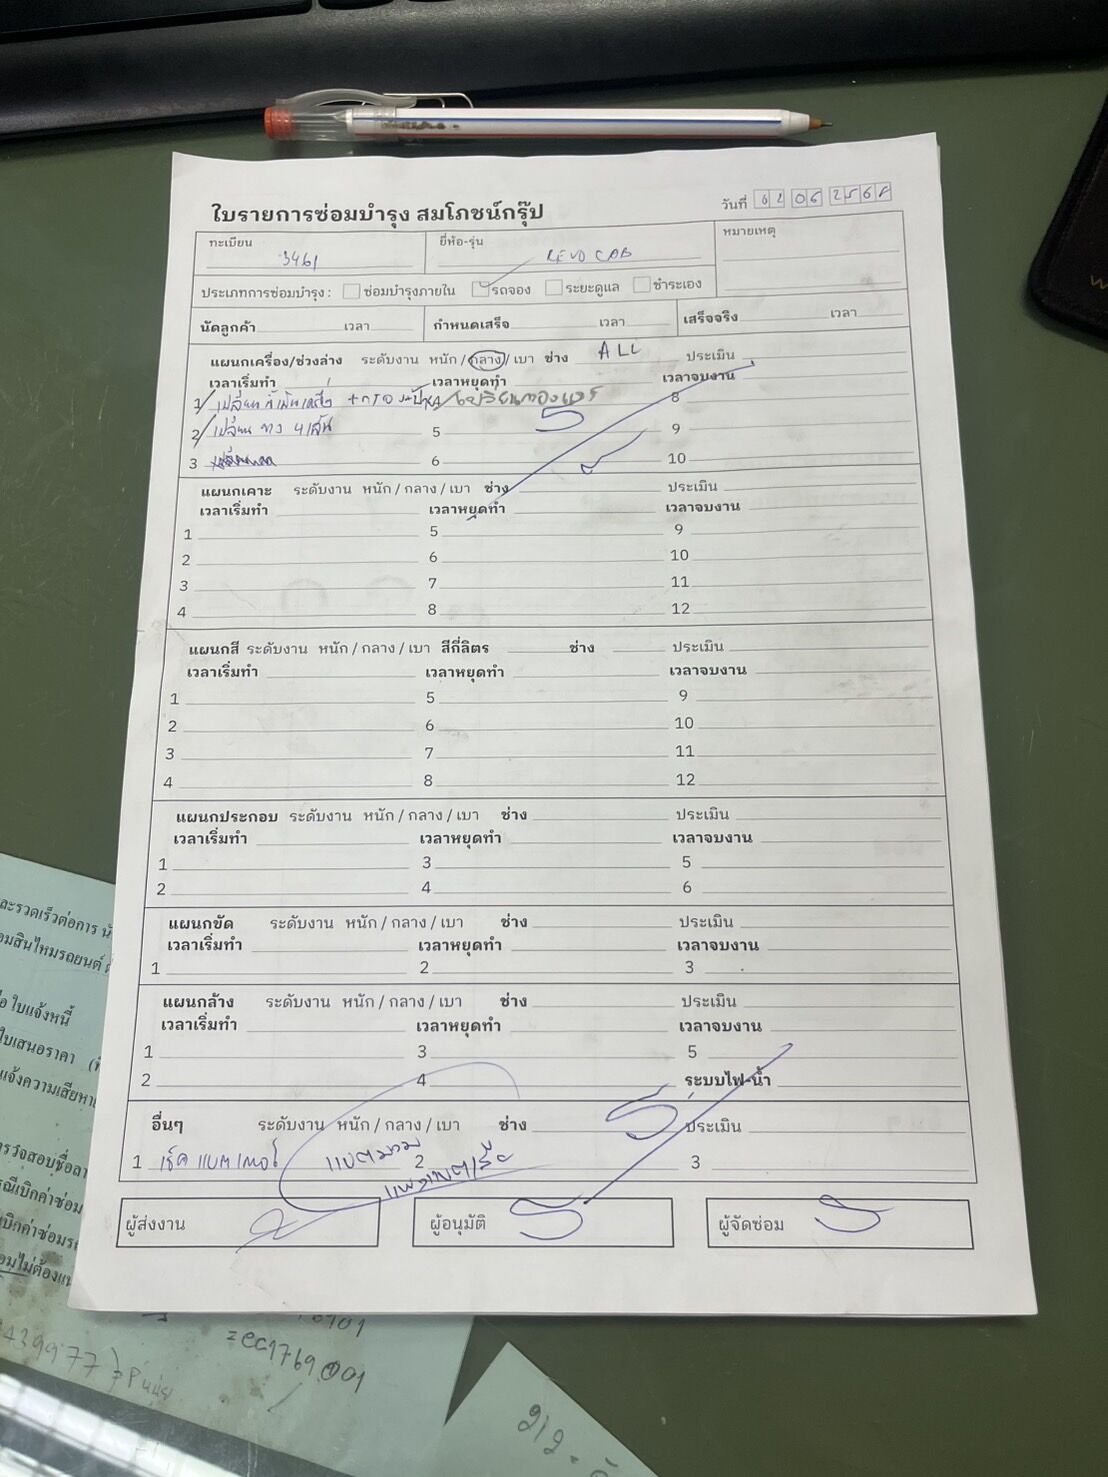 ใบรายการซ่อมบำรุง สมโภชน์กรุ๊ป
วันที่ 02 06 2568
ทะเบียน 3461 ยี่ห้อ-รุ่น REVO CAB หมายเหตุ
ประเภทการซ่อมบำรุง : ซ่อมบำรุงภายใน รถจอง ระยะดูแล ชำระเอง
นัดลูกค้า เวลา กำหนดเสร็จ เวลา เสร็จจริง เวลา
แผนกเครื่อง/ช่วงล่าง ระดับงาน หนัก / กลาง / เบา ช่าง ALL ประเมิน
เวลาเริ่มทำ เวลาหยุดทำ เวลาจบงาน
1 เปลี่ยนน้ำมันเครื่อง + กรอง 8
2 เปลี่ยน ยาง 4 เส้น 5 9
3 6 10
แผนกเคาะ ระดับงาน หนัก / กลาง / เบา ช่าง ประเมิน
เวลาเริ่มทำ เวลาหยุดทำ เวลาจบงาน
1 5 9
2 6 10
3 7 11
4 8 12
แผนกสี ระดับงาน หนัก / กลาง / เบา สีกี่ลิตร ช่าง ประเมิน
เวลาเริ่มทำ เวลาหยุดทำ เวลาจบงาน
1 5 9
2 6 10
3 7 11
4 8 12
แผนกประกอบ ระดับงาน หนัก / กลาง / เบา ช่าง ประเมิน
เวลาเริ่มทำ เวลาหยุดทำ เวลาจบงาน
1 3 5
2 4 6
แผนกขัด ระดับงาน หนัก / กลาง / เบา ช่าง ประเมิน
เวลาเริ่มทำ เวลาหยุดทำ เวลาจบงาน
1 2 3
แผนกล้าง ระดับงาน หนัก / กลาง / เบา ช่าง ประเมิน
เวลาเริ่มทำ เวลาหยุดทำ เวลาจบงาน
1 3 5
2 4 ระบบไฟ-น้ำ
อื่นๆ ระดับงาน หนัก / กลาง / เบา ช่าง ประเมิน
1 เช็ค แบตเตอรี่ 2 3
ผู้ส่งงาน ผู้อนุมัติ ผู้จัดซ่อม
และรวดเร็วต่อการ
อมสินไหมรถยนต์
ใบแจ้งหนี้
ใบเสนอราคา
แจ้งความเสียหา
รวจสอบชื่อ
รณีเบิกค่าซ่อม
เบิกค่าซ่อมร
อมไม่ต้องแ
43977
=ec1769001
212